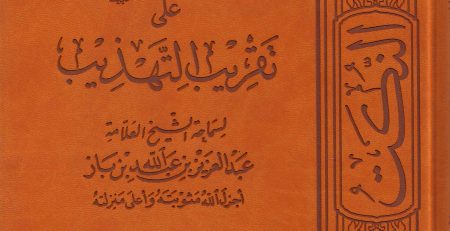 على
تقريب التهذيب
لسماحة الشيخ العلامة
عبد العزيز بن عبد الله بن باز
أجزل الله مثوبته وأعلى منزلته
النكت